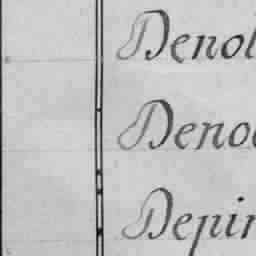 Denot
Denot
Depin